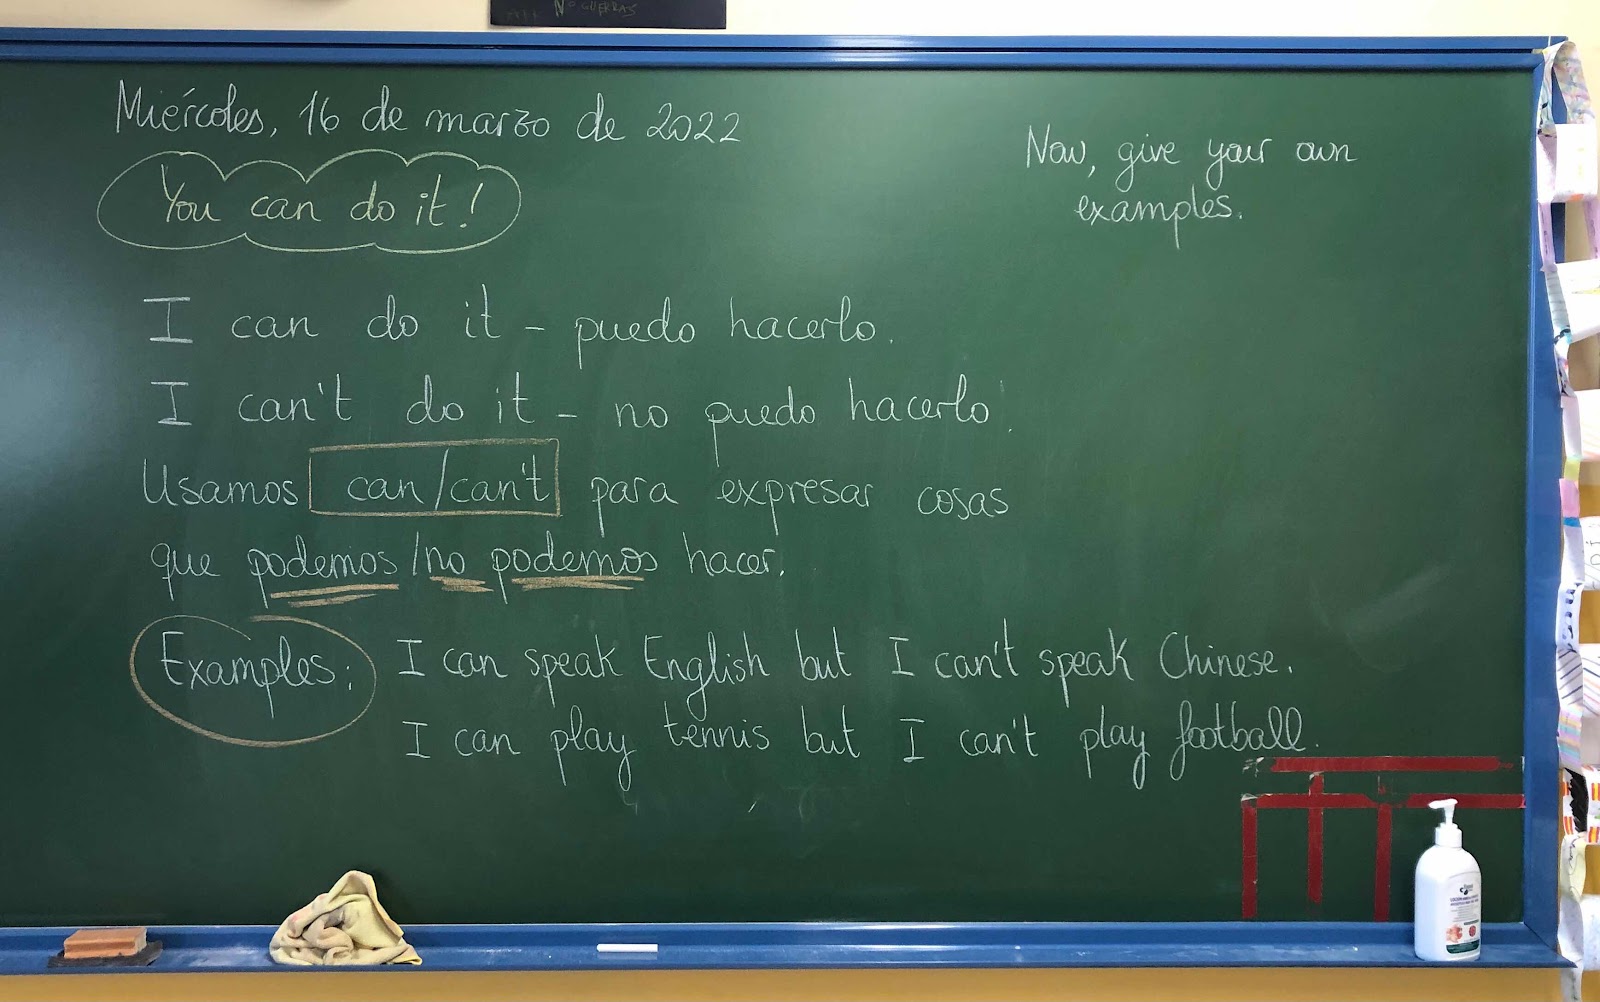 Nº GUERRAS
Miércoles, 16 de marzo de 2022
You can do it!
Now, give your own
examples.
I can do it - puedo hacerlo.
I can't do it - no puedo hacerlo.
Usamos can/can't para expresar cosas
que podemos/no podemos hacer.
Examples: I can speak English but I can't speak Chinese.
I can play tennis but I can't play football.